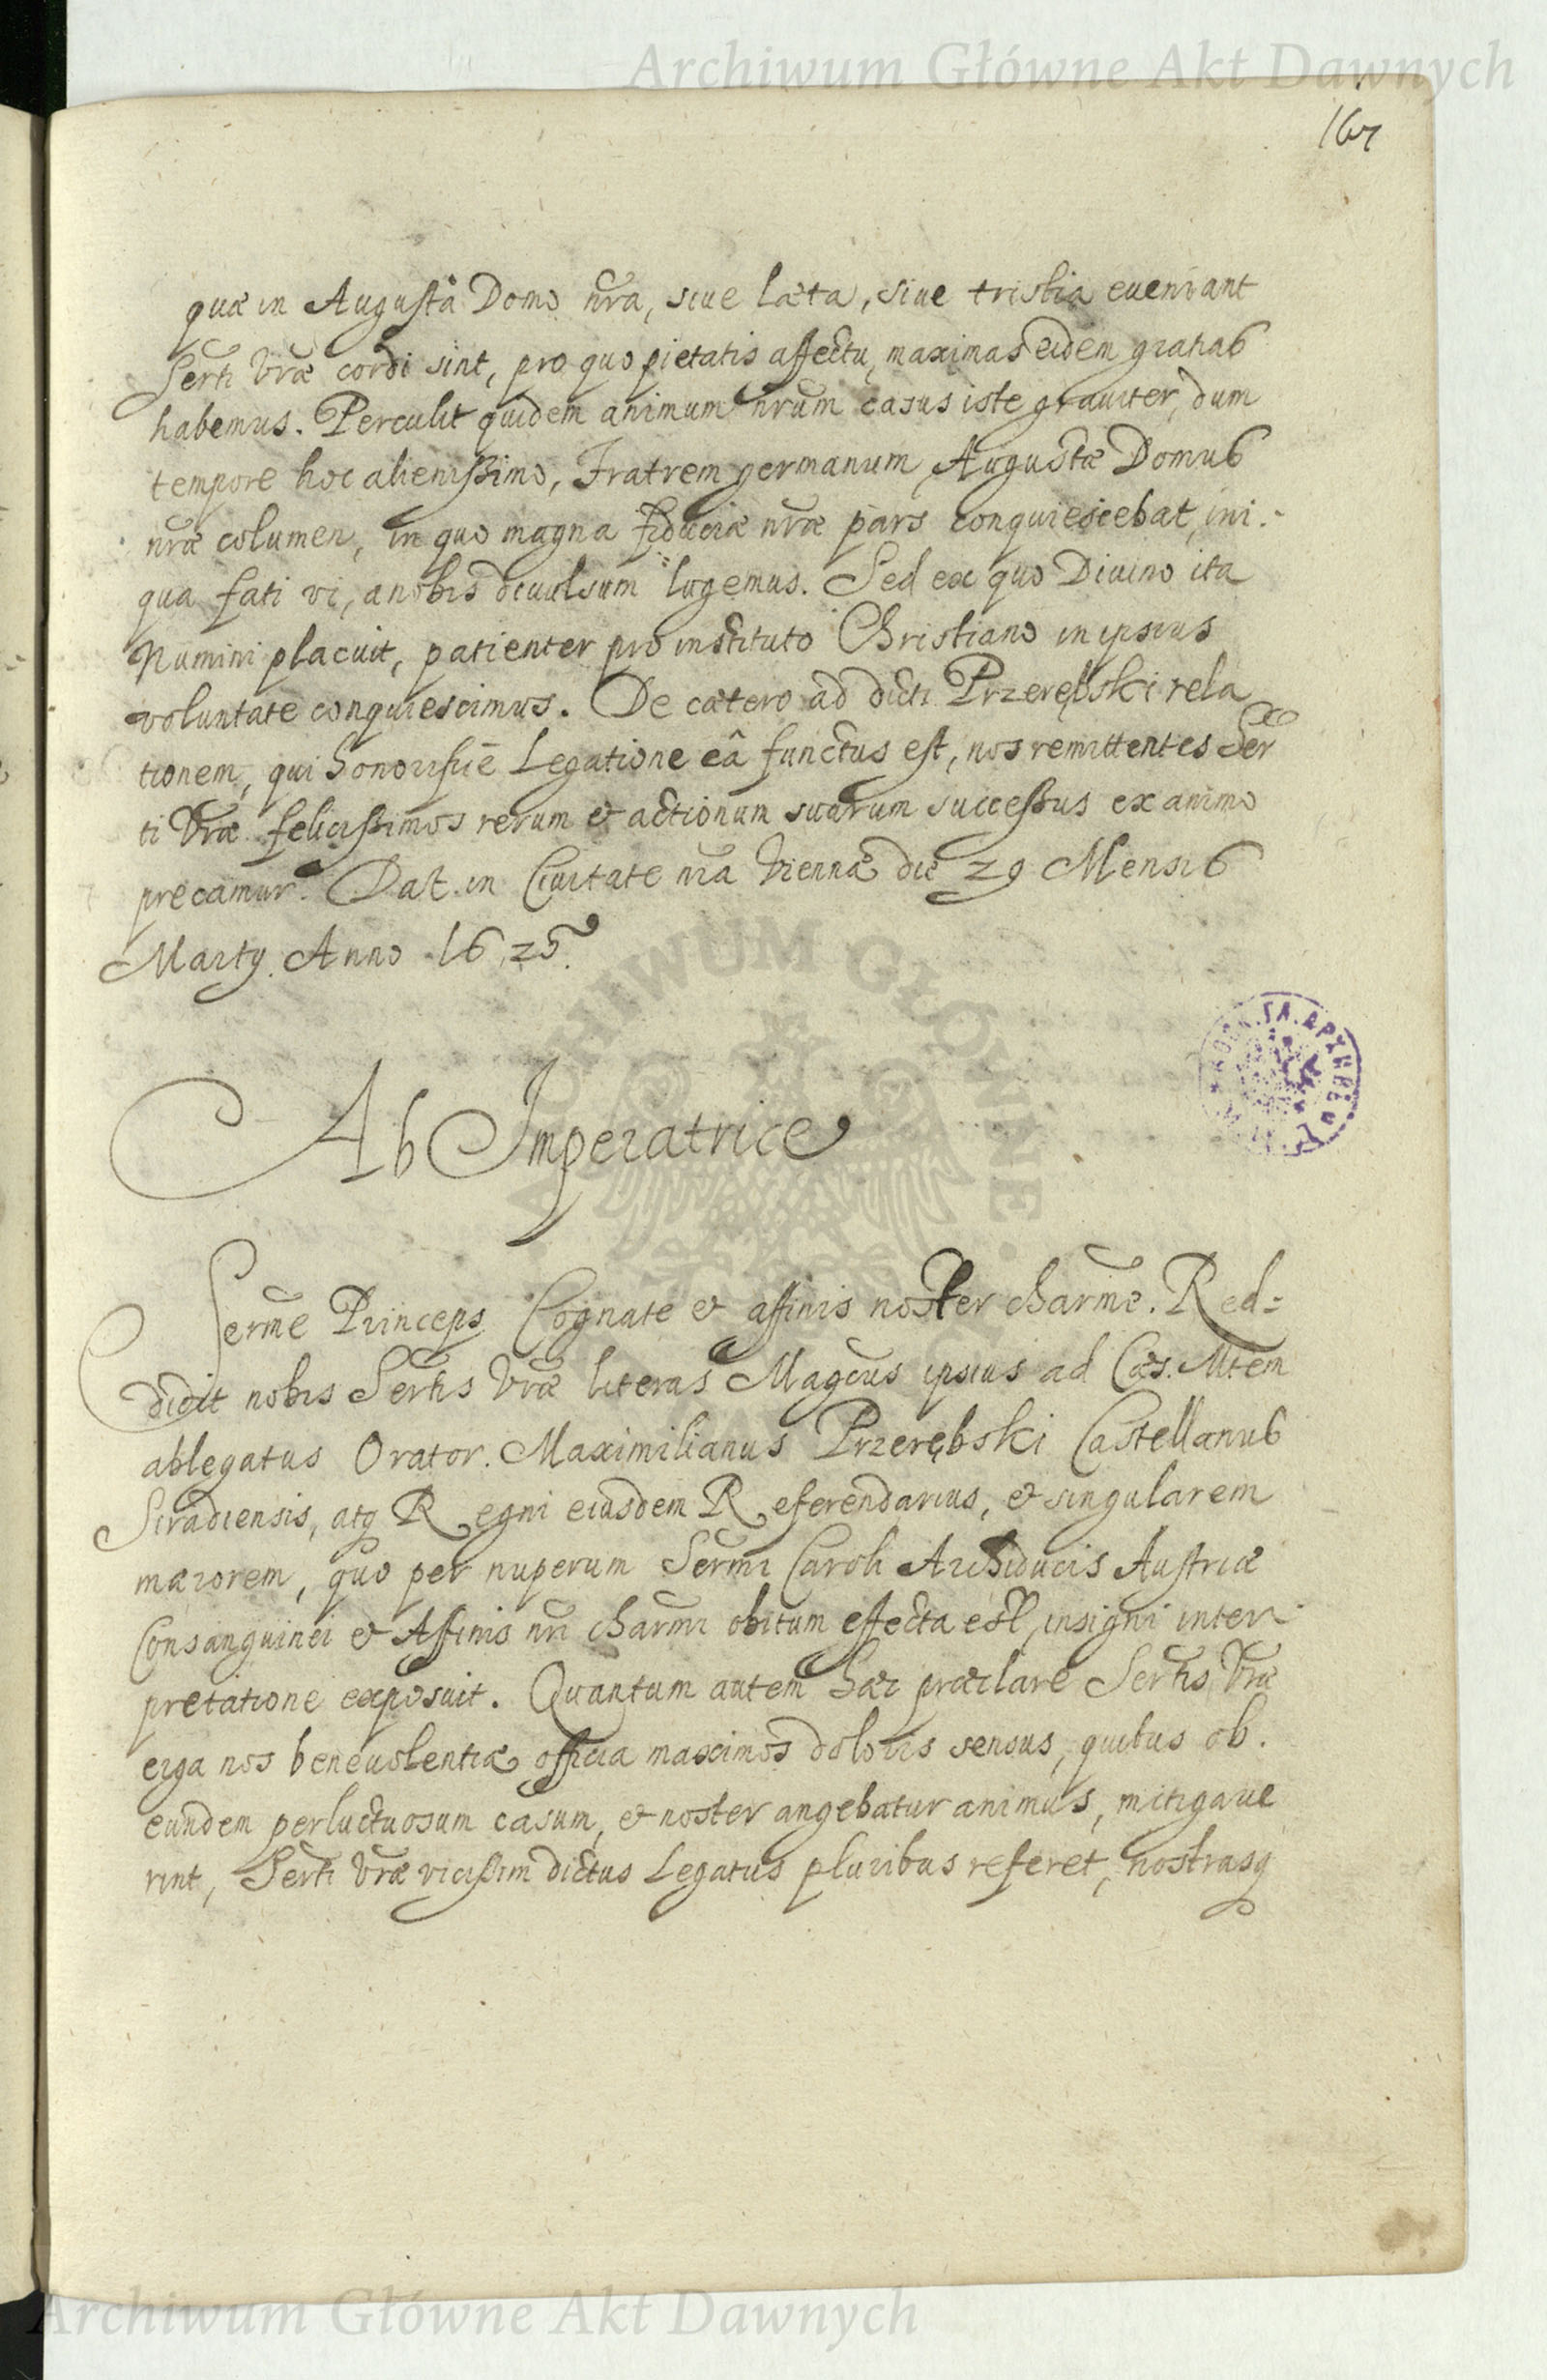 Archiwum Główne Akt Dawnych
167
quæ in Augustâ Domo nr̃a, siue læta, siue tristia eueniant
Serti Vræ cordi sint, pro quo pietatis affectu, maximas eidem gratias
habemus. Perculit quidem animum nrũm casus iste grauiter, dum
tempore hoc alienissimo, Fratrem germanum, Augustæ Domus
nræ columen, in quo magna fiduciæ nræ pars conquiescebat, ini-
qua fati vi, a nobis diuulsum lugemus. Sed ex quo Diuino ita
Numini placuit, patienter pro instituto Christiano in ipsius
voluntate conquiescimus. De cætero ad dicti Przerębski rela
tionem, qui honorificè Legatione eâ functus est, nos remittentes Ser
ti Vræ felicissimos rerum et actionum suarum successus ex animo
precamur. Dat. in Ciuitate nra Vienna die 29 Mensis
Martÿ. Anno 1625.
Ab Imperatrice
Serme Princeps Cognate et affinis noster charme. Red=
didit nobis Sertis Vræ literas Magcus ipsius ad Cæs. Mtem
ablegatus Orator. Maximilianus Przerębski Castellanus
Siradiensis, atq Regni eiusdem Referendarius, et singularem
mærorem, quo per nuperum Sermi Caroli Archiducis Austriæ
Consanguinei et Affinis nri charmi obitum effecta est, insigni inter-
pretatione exposuit. Quantum autem hæc præclare Sertis Vræ
erga nos beneuolentiæ officia maximos doloris sensus, quibus ob.
eundem perluctuosum casum, et noster angebatur animus, mitigaue
rint, Serti Vræ vicissim dictus Legatus pluribus referet, nostrasq
Archiwum Główne Akt Dawnych